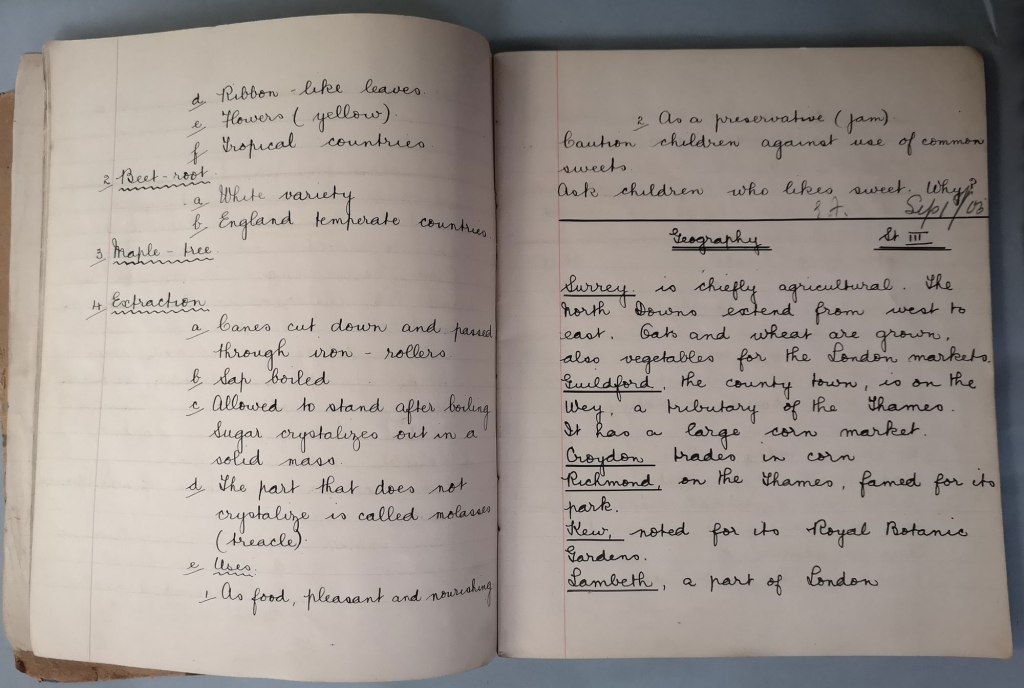 d Ribbon-like leaves.
e Flowers (yellow).
f Tropical countries.
2 Beet-root.
a White variety
b England temperate countries.
3 Maple-tree
4 Extraction
a Canes cut down and passed
through iron-rollers.
b Sap boiled
c Allowed to stand after boiling
Sugar crystalizes out in a
solid mass.
d The part that does not
crystalize is called molasses
(treacle).
e Uses.
1 As food, pleasant and nourishing
2 As a preservative (jam)
Caution children against use of common
sweets.
Ask children who likes sweet. Why?
Sep 1/03
Geography St III
Surrey. is chiefly agricultural. The
North Downs extend from west to
east. Oats and wheat are grown,
also vegetables for the London markets.
Guildford, the county town, is on the
Wey, a tributary of the Thames.
It has a large corn market.
Croydon trades in corn
Richmond, on the Thames, famed for its
park.
Kew, noted for its Royal Botanic
Gardens.
Lambeth, a part of London